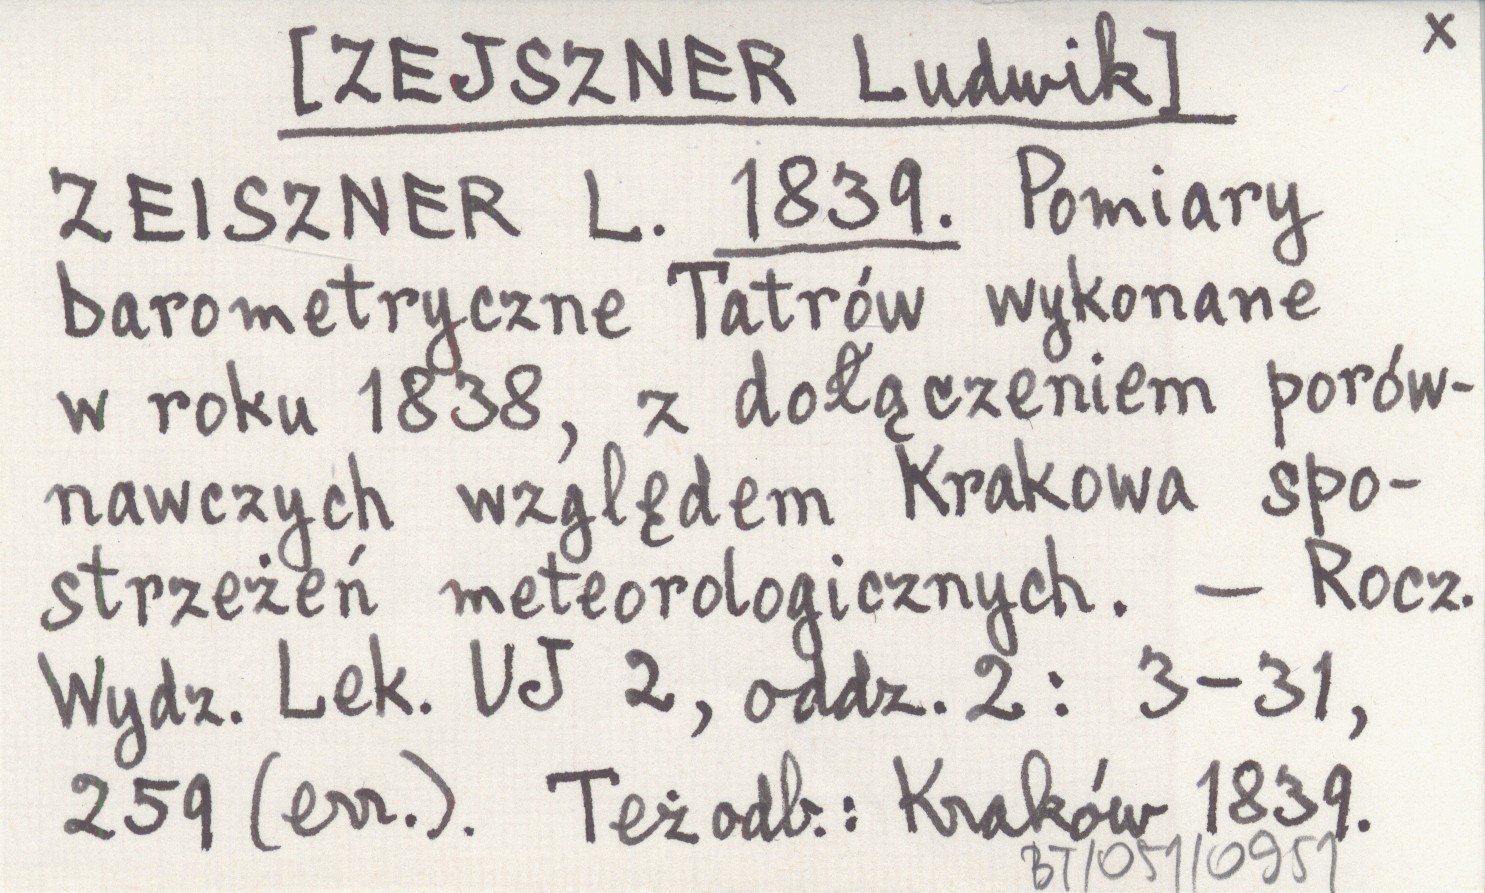 x
[ZEJSZNER Ludwik]
ZEISZNER L. 1839. Pomiary
barometryczne Tatrów wykonane
w roku 1838, z dołączeniem porów-
nawczych względem Krakowa spo-
strzeżeń meteorologicznych. — Rocz.
Wydz. Lek. UJ 2, oddz. 2: 3-31,
259 (err.). Też odb.: Kraków 1839.
BT/051/0951